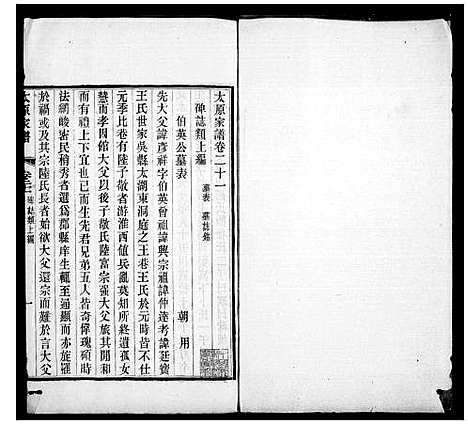 太原家譜卷二十一
碑誌類上編 墓表 墓誌銘
伯英公墓表 朝用
先大父諱彥祥字伯英曾祖諱興宗祖諱仲達考諱廷寶
王氏世家吳縣太湖東洞庭之王巷王氏於元時皆不仕
元季比巷有陸子敬者游淮西値兵亂莫知所終遺孤女
慧而孝因贅大父於陸氏陸富宗強大父旅其閒和
而有禮上下宜也已而生先君兄弟五人皆奇偉瑰碩時
法網峻密民稍秀者選爲郡縣庠生輒至通顯而亦旋罹
於禍或及其宗陸氏長者始欲大父還宗而難於言大父
太原家譜 卷二十一 碑誌類上編 一